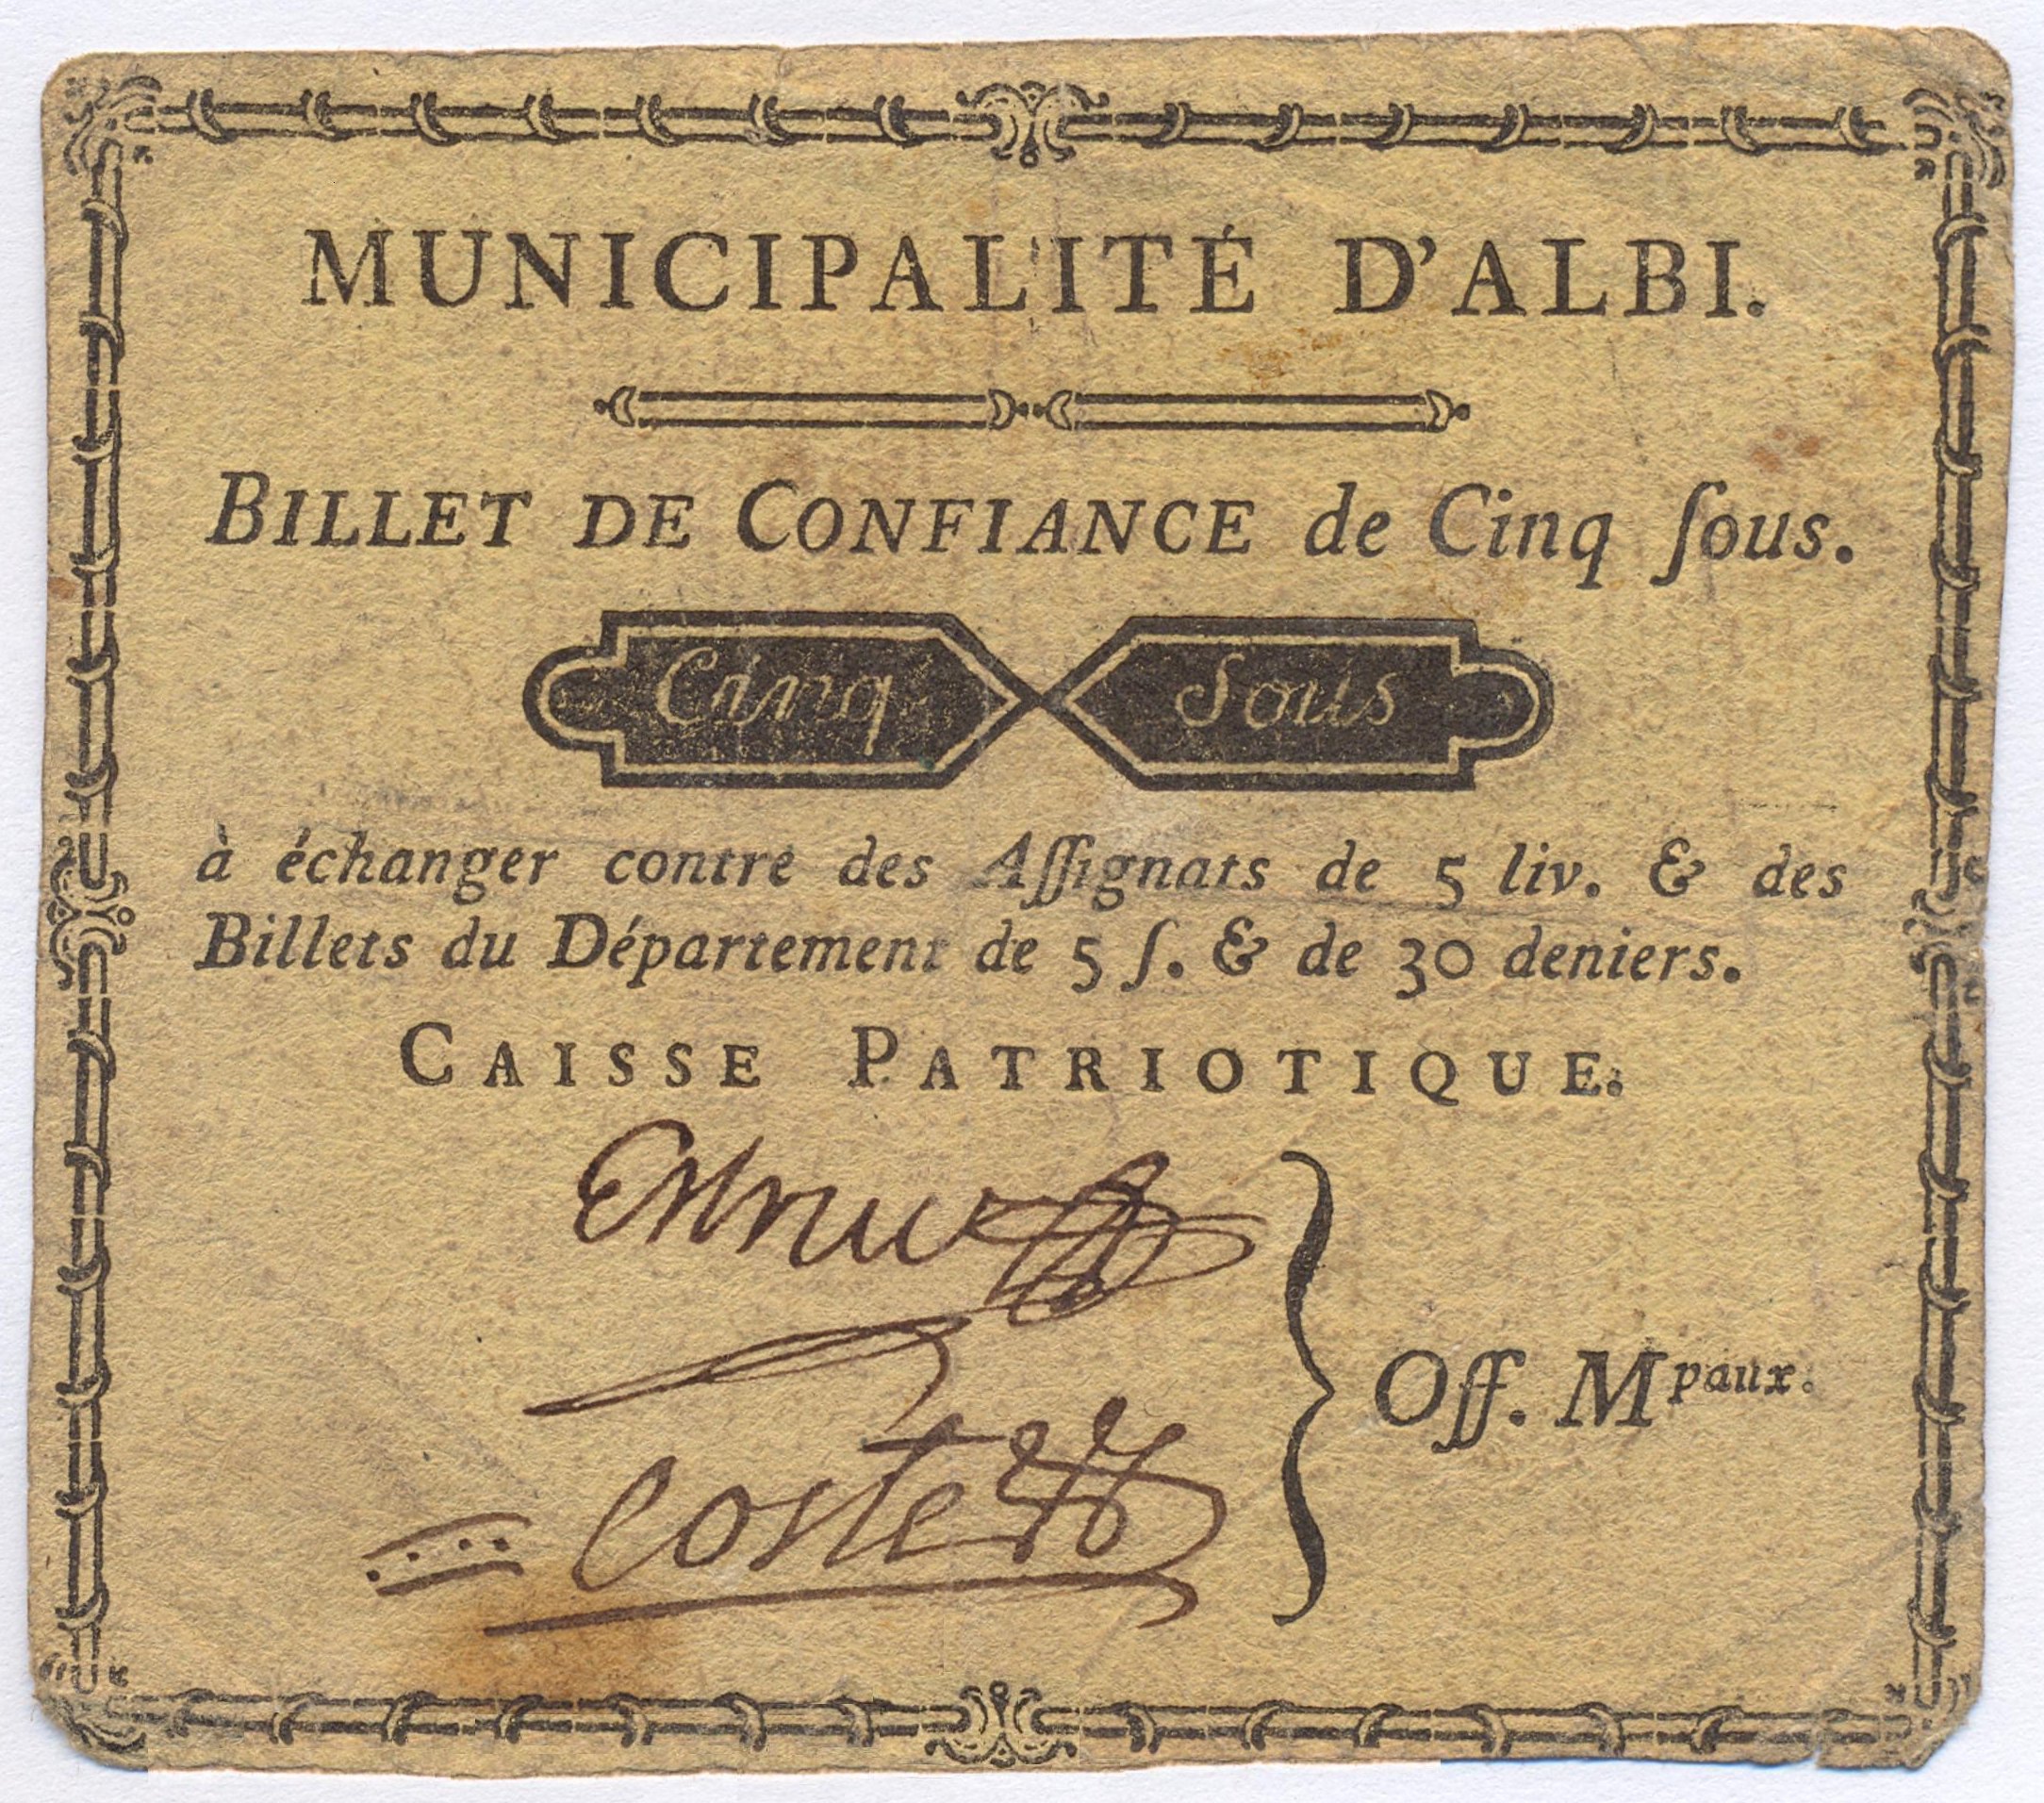 MUNICIPALITÉ D'ALBI.
BILLET DE CONFIANCE de Cinq ſous.
Cinq Sous
à échanger contre des Aſſignats de 5 liv. & des
Billets du Département de 5 ſ. & de 30 deniers.
CAISSE PATRIOTIQUE.
Off. Mpaux.
Coste